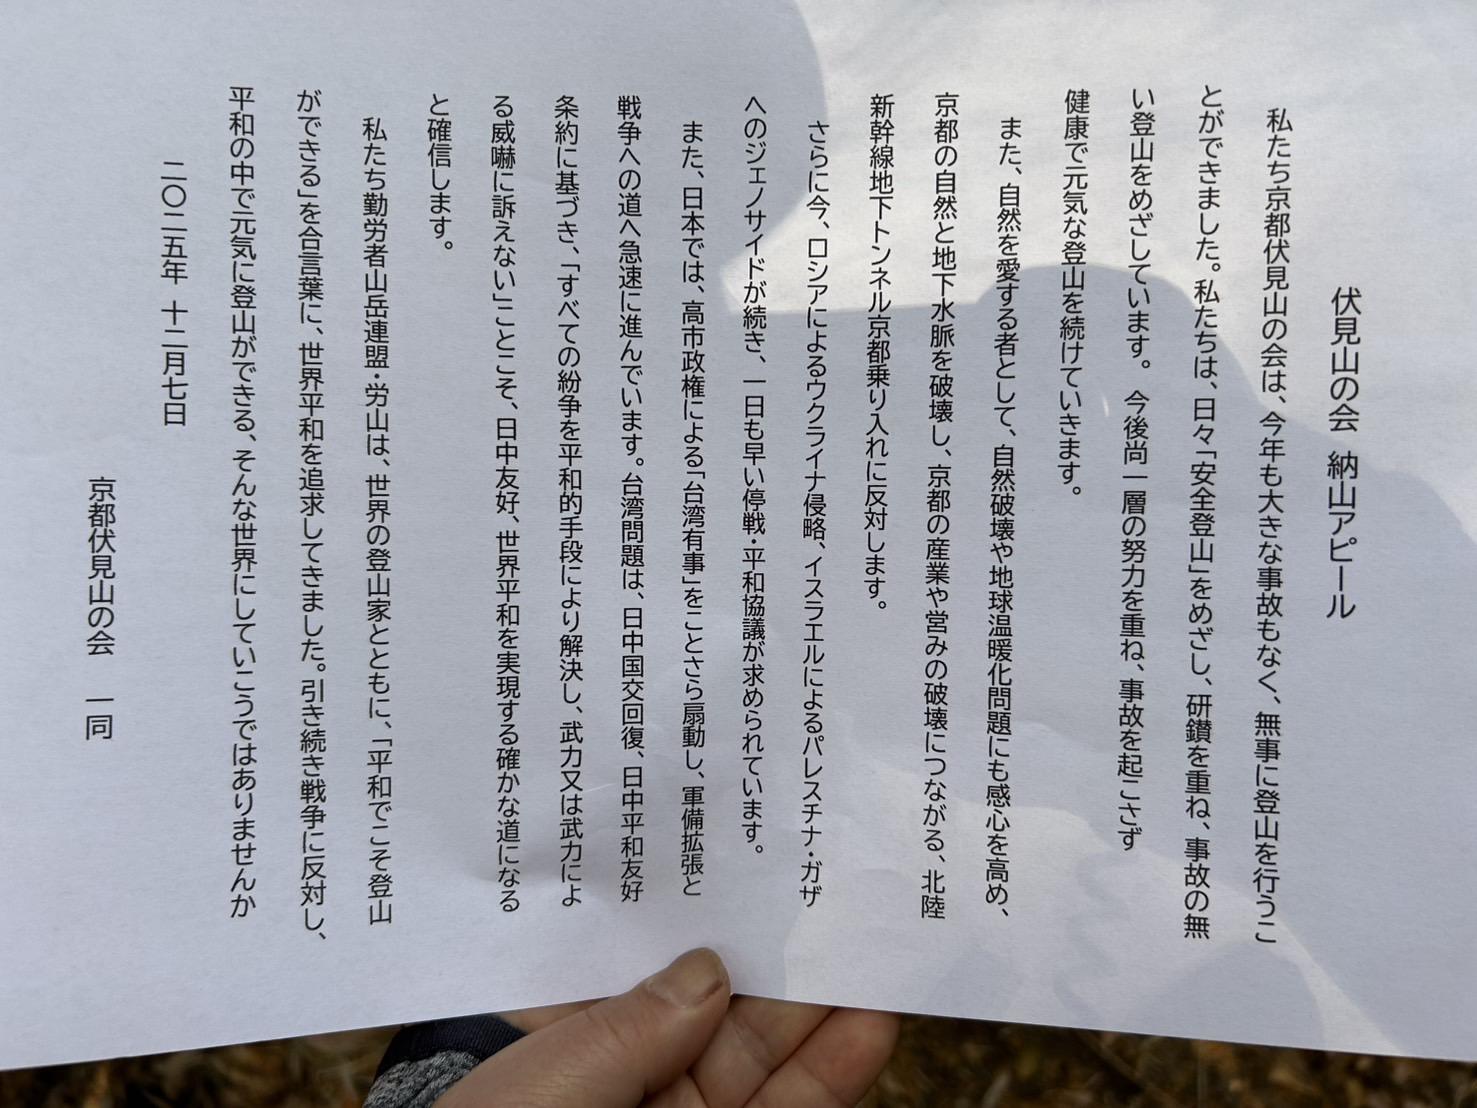 伏見山の会 納山アピール
私たち京都伏見山の会は、今年も大きな事故もなく、無事に登山を行うこ
とができました。私たちは、日々「安全登山」をめざし、研鑽を重ね、事故の無
い登山をめざしています。今後尚一層の努力を重ね、事故を起こさず
健康で元気な登山を続けていきます。
また、自然を愛する者として、自然破壊や地球温暖化問題にも感心を高め、
京都の自然と地下水脈を破壊し、京都の産業や営みの破壊につながる、北陸
新幹線地下トンネル京都乗り入れに反対します。
さらに今、ロシアによるウクライナ侵略、イスラエルによるパレスチナ・ガザ
へのジェノサイドが続き、一日も早い停戦・平和協議が求められています。
また、日本では、高市政権による「台湾有事」をことさら扇動し、軍備拡張と
戦争への道へ急速に進んでいます。台湾問題は、日中国交回復、日中平和友好
条約に基づき、「すべての紛争を平和的手段により解決し、武力又は武力によ
る威嚇に訴えない」ことこそ、日中友好、世界平和を実現する確かな道になる
と確信します。
私たち勤労者山岳連盟・労山は、世界の登山家とともに、「平和でこそ登山
ができる」を合言葉に、世界平和を追求してきました。引き続き戦争に反対し、
平和の中で元気に登山ができる、そんな世界にしていこうではありませんか
二〇二五年 十二月七日
京都伏見山の会 一同